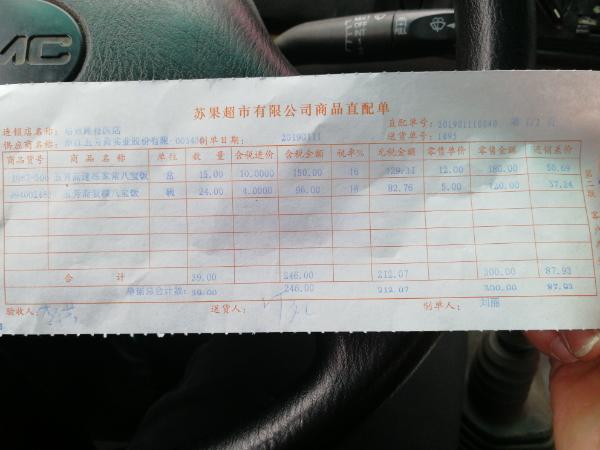 MC
苏果超市有限公司商品直配单
连锁店名称:
直配单号: 201901110040 第 1/1 页
供应商名称: 南京五芳斋实业股份有限 制单日期: 20190111 送货单号: 1895
商品货号 商品名称 单位 数量 含税进价 含税金额 税率% 无税金额 零售单价 零售金额 进销差价
五芳斋 八宝饭 盒 15.00 10.0000 150.00 16 129.31 12.00 180.00 50.69
五芳斋 八宝饭 碗 24.00 4.0000 96.00 16 82.76 5.00 120.00 37.24
合计 39.00 246.00 212.07 300.00 87.93
单据总合计数: 39.00 246.00 212.07 300.00 87.93
验收人: 送货人: 制单人: 刘丽